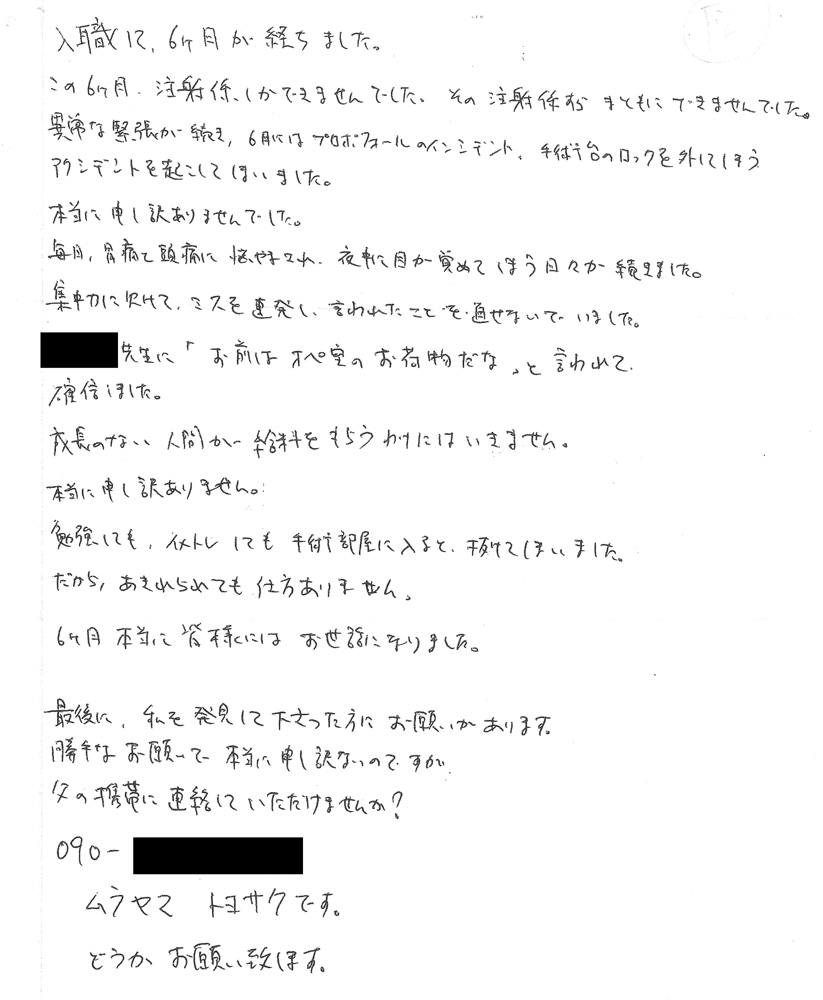 入職して、6ヶ月が経ちました。
この6ヶ月、注射係しかできませんでした。その注射係すらまともにできませんでした。
異常な緊張が続き、6月にはプロポフォールのインシデント、手術台のロックを外してしまう
アクシデントを起こしてしまいました。
本当に申し訳ありませんでした。
毎日、胃痛と頭痛に悩やまされ、夜中に目が覚めてしまう日々が続きました。
集中力に欠けて、ミスを連発し、言われたことを通せないでいました。
先生に「お前はオペ室のお荷物だな」と言われて、
確信しました。
成長のない人間が給料をもらうわけにはいきません。
本当に申し訳ありません。
勉強しても、イメトレしても手術部屋に入ると、抜けてしまいました。
だから、あきれられても仕方ありません。
6ヶ月本当に皆様にはお世話になりました。
最後に、私を発見して下さった方にお願いがあります。
勝手なお願いで本当に申し訳ないのですが、
父の携帯に連絡していただけませんか?
090-
ムラヤマ トヨサクです。
どうかお願い致します。